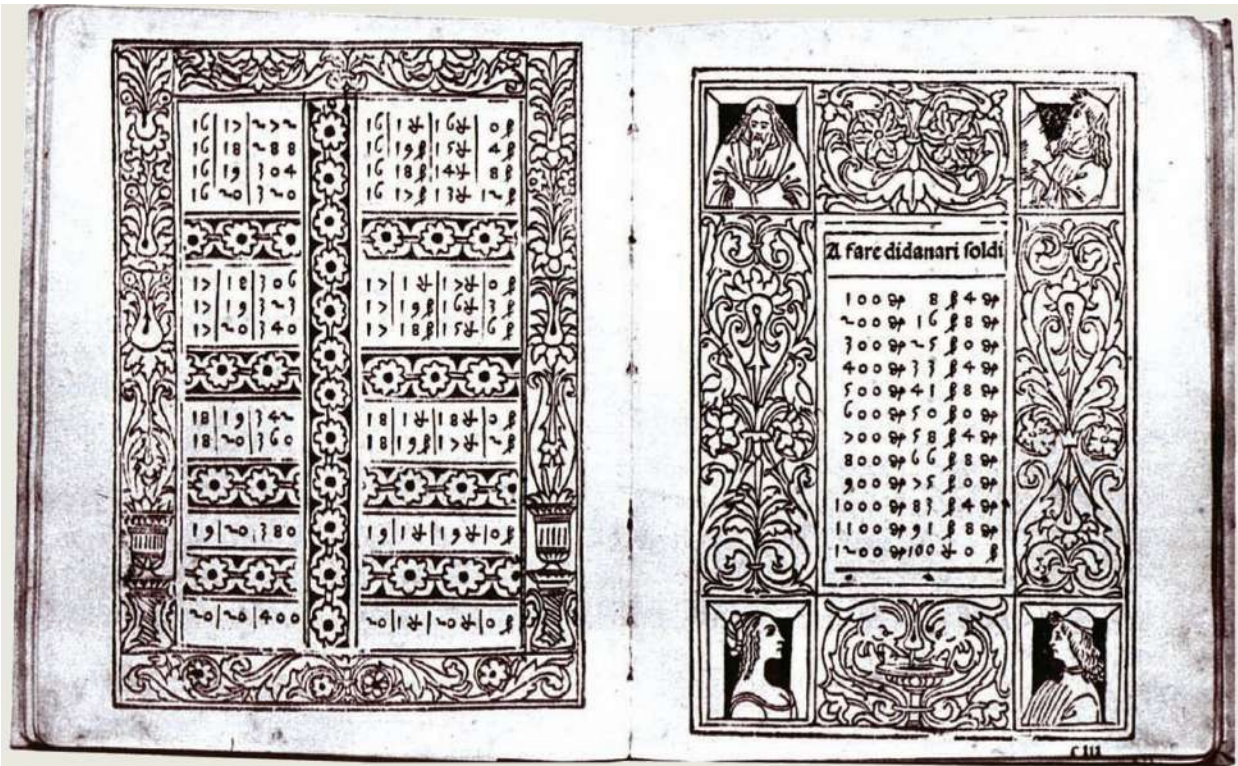 16|17|272
16|18|288
16|19|304
16|20|320
17|18|306
17|19|323
17|20|340
18|19|342
18|20|360
19|20|380
20|20|400
16|1₶|16₶|0ß
16|19ß|15₶|4ß
16|18ß|14₶|8ß
16|17ß|13₶|12ß
17|1₶|17₶|0ß
17|19ß|16₶|3ß
17|18ß|15₶|6ß
18|1₶|18₶|0ß
18|19ß|17₶|2ß
19|1₶|19₶|0ß
20|1₶|20₶|0ß
A fare didanari soldi
100 ₰ 8 ß 4 ₰
200 ₰ 16 ß 8 ₰
300 ₰ 25 ß 0 ₰
400 ₰ 33 ß 4 ₰
500 ₰ 41 ß 8 ₰
600 ₰ 50 ß 0 ₰
700 ₰ 58 ß 4 ₰
800 ₰ 66 ß 8 ₰
900 ₰ 75 ß 0 ₰
1000 ₰ 83 ß 4 ₰
1100 ₰ 91 ß 8 ₰
1200 ₰ 100 ₶ 0 ß
c iii